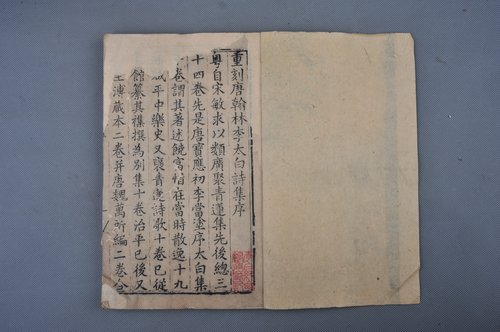 重刻唐翰林李太白詩集序
粵自宋敏求以類廣聚青蓮集先後總三
十四卷先是唐寶應初李當塗序太白集
卷謂其著述饒富怕在當時散逸十九
咸平中樂史又裒青蓮詩歌十卷已從
館纂其襍撰為別集十卷治平已後又
王溥藏本二卷并唐魏萬所編二卷合